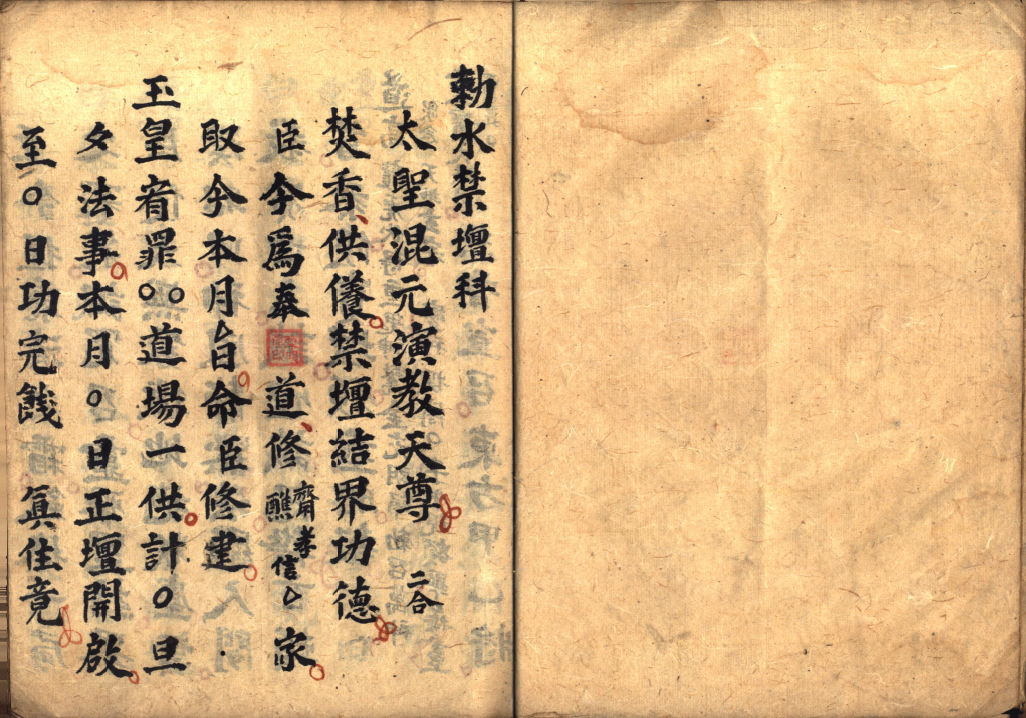 勅水禁壇科
太聖混元演教天尊 二合
焚香供養禁壇結界功德
臣今為奉道修齋醮孝信厶家
取今本月厶日命臣修建
玉皇宥罪○○道場一供計○旦
夕法事本月○日正壇開啟
至○日功完餞真住竟